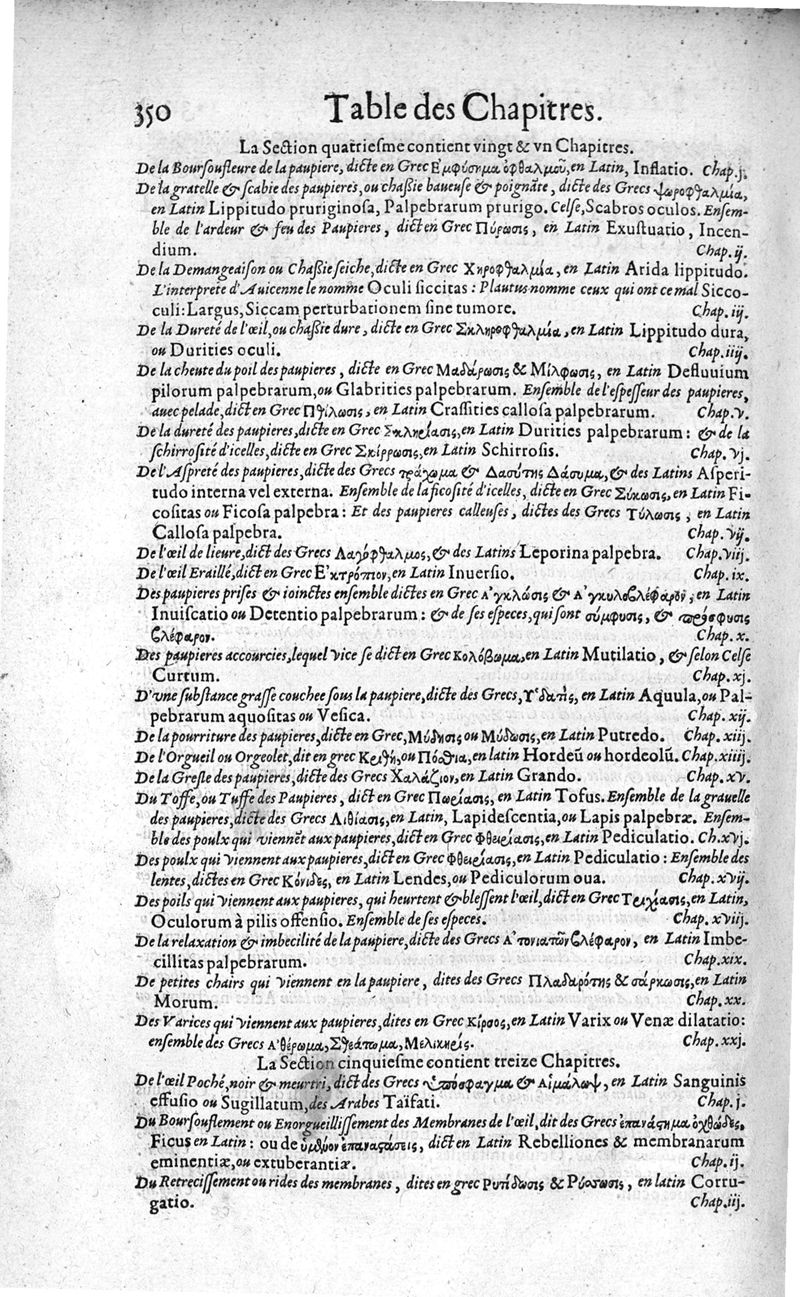 350 Table des Chapitres.
La Section quatriesme contient vingt & vn Chapitres.
De la Boursoufleure de la paupiere, dicte en Grec Εμφύσημα ὀφθαλμοῦ, en Latin, Inflatio. Chap. j.
De la gratelle & scabie des paupieres, ou chaßie baueuse & poignāte, dicte des Grecs ψωροφθαλμία,
en Latin Lippitudo pruriginosa, Palpebrarum prurigo. Celse, Scabros oculos. Ensem-
ble de l'ardeur & feu des Paupieres, dict en Grec Πύρωσις, en Latin Exustuatio, Incen-
dium. Chap. ij.
De la Demangeaison ou Chaßie seiche, dicte en Grec Χηροφθαλμία, en Latin Arida lippitudo.
L'interprete d'Auicenne le nomme Oculi siccitas : Plautus nomme ceux qui ont ce mal Sicco-
culi: Largus, Siccam perturbationem sine tumore. Chap. iij.
De la Dureté de l'œil, ou chaßie dure, dicte en Grec Σκληροφθαλμία, en Latin Lippitudo dura,
ou Durities oculi. Chap. iiij.
De la cheute du poil des paupieres, dicte en Grec Μαδάρωσις & Μίλφωσις, en Latin Defluuium
pilorum palpebrarum, ou Glabrities palpebrarum. Ensemble de l'espesseur des paupieres,
auec pelade, dict en Grec Πτίλωσις, en Latin Crassities callosa palpebrarum. Chap. v.
De la dureté des paupieres, dicte en Grec Σκληρίασις, en Latin Durities palpebrarum : & de la
schirrosité d'icelles, dicte en Grec Σκίρρωσις, en Latin Schirrosis. Chap. vj.
De l'Aspreté des paupieres, dicte des Grecs τράχωμα & Δασύτης Δάσυμα, & des Latins Asperi-
tudo interna vel externa. Ensemble de la ficosité d'icelles, dicte en Grec Σύκωσις, en Latin Fi-
cositas ou Ficosa palpebra : Et des paupieres calleuses, dictes des Grecs Τύλωσις, en Latin
Callosa palpebra. Chap. vij.
De l'œil de lieure, dict des Grecs Λαγόφθαλμος, & des Latins Leporina palpebra. Chap. viij.
De l'œil Eraillé, dict en Grec Ε'κτρόπιον, en Latin Inuersio. Chap. ix.
Des paupieres prises & ioinctes ensemble dictes en Grec Α'γκλώσις & Α'γκυλοβλέφαρον, en Latin
Inuiscatio ou Detentio palpebrarum : & de ses especes, qui sont σύμφυσις, & πρόσφυσις
βλέφαρον. Chap. x.
Des paupieres accourcies, lequel vice se dict en Grec Κολόβωμα, en Latin Mutilatio, & selon Celse
Curtum. Chap. xj.
D'vne substance grasse couchee sous la paupiere, dicte des Grecs, Υ'δατὴς, en Latin Aquula, ou Pal-
pebrarum aquositas ou Vesica. Chap. xij.
De la pourriture des paupieres, dicte en Grec, Μύδησις ou Μύδωσις, en Latin Putredo. Chap. xiij.
De l'Orgueil ou Orgeolet, dit en grec Κριθὴ, ou Πόσθια, en latin Hordeū ou hordeolū. Chap. xiiij.
De la Gresle des paupieres, dicte des Grecs Χαλάζιον, en Latin Grando. Chap. xv.
Du Toffe, ou Tuffe des Paupieres, dict en Grec Πωρίασις, en Latin Tofus. Ensemble de la grauelle
des paupieres, dicte des Grecs Λιθίασις, en Latin, Lapidescentia, ou Lapis palpebræ. Ensem-
ble des poulx qui viennēt aux paupieres, dict en Grec Φθειρίασις, en Latin Pediculatio. Ch. xvj.
Des poulx qui viennent aux paupieres, dict en Grec Φθειρίασις, en Latin Pediculatio : Ensemble des
lentes, dictes en Grec Κόνιδες, en Latin Lendes, ou Pediculorum oua. Chap. xvij.
Des poils qui viennent aux paupieres, qui heurtent & blessent l'œil, dict en Grec Τριχίασις, en Latin,
Oculorum à pilis offensio. Ensemble de ses especes. Chap. xviij.
De la relaxation & imbecilité de la paupiere, dicte des Grecs Α'τονιατῶν βλέφαρον, en Latin Imbe-
cillitas palpebrarum. Chap. xix.
De petites chairs qui viennent en la paupiere, dites des Grecs Πλαδαρότης & σάρκωσις, en Latin
Morum. Chap. xx.
Des Varices qui viennent aux paupieres, dites en Grec Κίρσος, en Latin Varix ou Venæ dilatatio:
ensemble des Grecs Α'θέρωμα, Στεάτωμα, Μελικηρίς. Chap. xxj.
La Section cinquiesme contient treize Chapitres.
De l'œil Poché, noir & meurtri, dict des Grecs ὑπόσφαγμα & Αἱμάλωψ, en Latin Sanguinis
effusio ou Sugillatum, des Arabes Taifati. Chap. j.
Du Boursouflement ou Enorgueillissement des Membranes de l'œil, dit des Grecs ἐπανάστημα ὀχθῶδες,
Ficus en Latin : ou de ἐπαναστάσεις, dict en Latin Rebelliones & membranarum
eminentiæ, ou extuberantiæ. Chap. ij.
Du Retrecissement ou rides des membranes, dites en grec Ρυτίδωσις & Ρύσωσις, en latin Corru-
gatio. Chap. iij.